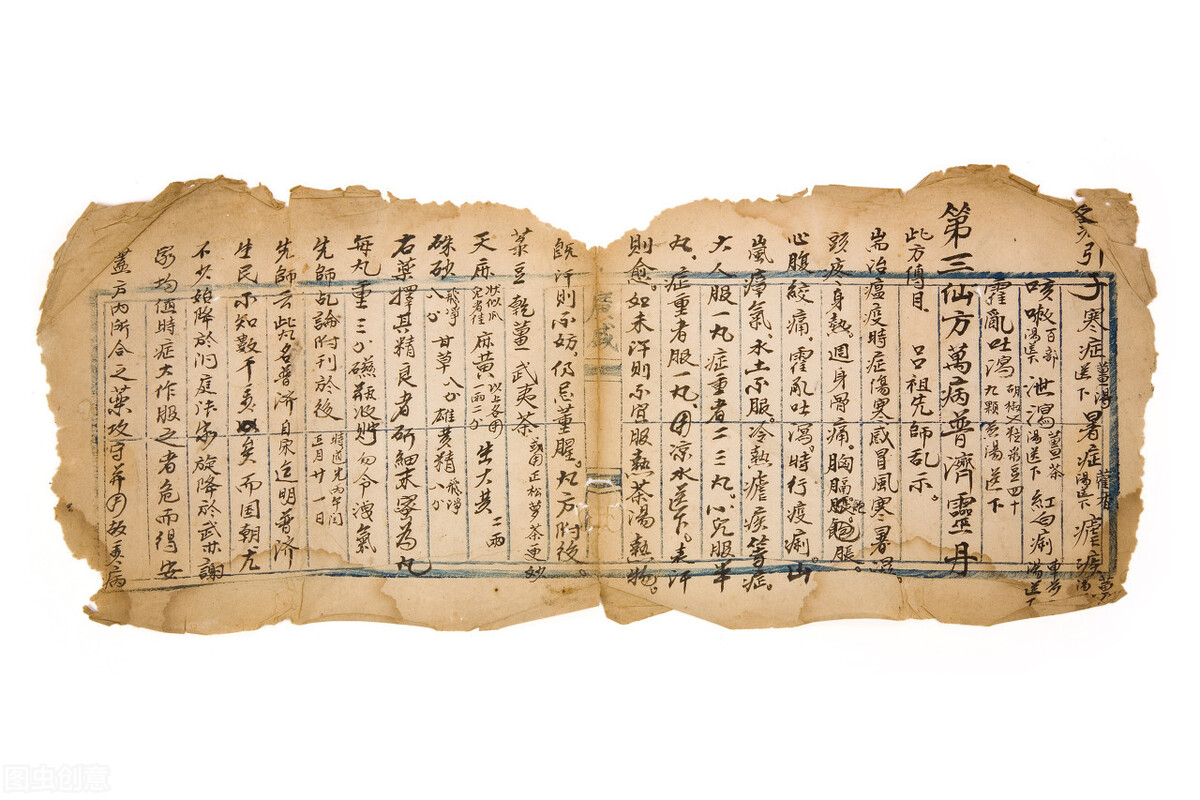 引子 寒症 薑湯送下 暑症 藿香湯送下 瘧疾
咳嗽 百部湯送下 泄瀉 薑茶湯送下 紅白痢 車前湯送下
霍亂吐瀉 胡椒粒菉豆四十九顆煎湯送下
第三仙方萬病普濟靈丹
此方傅自 呂祖先師乱示。
耑治瘟疫時症傷寒感冒風寒暑濕。
頭疼身熱。週身骨痛。胸膈飽脹。
心腹絞痛。霍乱吐瀉。時行疫痢。山
嵐瘴氣。水土不服。冷熱瘧疾等症。
大人服一丸。症重者二三丸。小兒服半
丸。症重者服一丸。用凉水送下。表汗
則愈。如未汗則不宜服熱茶湯熱物。
既汗則不妨。仍忌葷腥。丸方附後。
菉豆 乾薑 武夷茶 或用正松蘿茶更妙
天麻 状似瓜兒者佳 麻黄 以上各用一兩二分 生大黄 二兩
硃砂 飛凈八分 甘草 八分 雄黄精 飛凈八分
右藥擇其精良者研細末蜜為丸
每丸重三分磁瓶收貯勿令洩氣
先師乩論附刊於後 時道光丙午閏五月廿一日
先師云此丸名普濟自宋迄明普濟
生民不知數千亥矣而国朝尤
不少始降於洞庭法家旋降於武林謝
家均值時症大作服之者危而得安
蓋方内所合之藥攻守并用故妄病